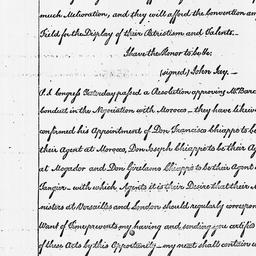 much Melioration, and they will afford the convention an
Field for the Display of their Patriotism and Talents.
I have the Honor to be &c.
(signed) John Jay.—
P.S. Congress Yesterday passed a Resolution approving Mr. Barc
Conduct in the Negociation with Morocco— they have likewi
confirmed his Appointment of Don Francisco Chiappe to be
their Agent at Morocco, Don Joseph Chiappe to be their Ag
at Mogador and Don Girolamo Chiappe to be their Agent
Tangier— with which Agents it is their Desire that their M
nisters at Versailles and London should regularly correspon
Want of Time prevents my having and sending you certified
of these Acts by this Opportunity— my next shall contain